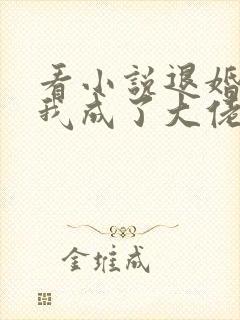 看小说退婚
我成了大佬
金堆成